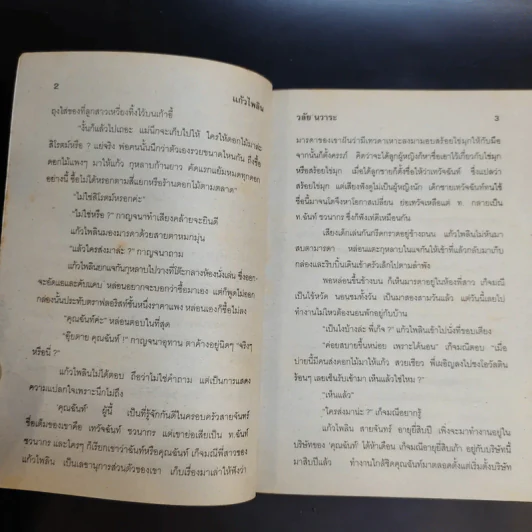 2
แก้วไพลิน
ถุงใส่ของที่ลูกสาวเหวี่ยงทิ้งไว้บนเก้าอี้
"งั้นก็แล้วไปเถอะ แม่นึกจะเก็บไปให้ ใครให้ดอกไม้มาล่ะ
สิโรตม์หรือ ? แย่จริง พ่อคนนั้นนึกว่าตัวเองรวยขนาดไหนกัน ถึงซื้อ
ดอกไม้แพงๆ มาให้แก้ว กุหลาบก้านยาว คัดแรกแย้มหมดทุกดอก
อย่างนี้ ซื้อไม่ได้หรอกตามสี่แยกหรือร้านดอกไม้ตามตลาด"
"ไม่ใช่สิโรตม์หรอกค่ะ"
"ไม่ใช่หรือ ?" กาญจนาทำเสียงคล้ายจะยินดี
แก้วไพลินมองมารดาด้วยสายตาหมกมุ่น
"แล้วใครส่งมาล่ะ ?" กาญจนาถาม
แก้วไพลินยกแจกันกุหลาบไปวางที่โต๊ะกลางห้องนั่งเล่น ซึ่งออก-
จะอัดแอและคับแคบ หล่อนอยากจะบอกว่าซื้อมาเอง แต่ก็พูดไม่ออก
กล่องนั้นประทับตราฟลอริสท์ชั้นหนึ่งราคาแพง หล่อนเองก็ซื้อไม่ลง
"คุณฉันท์ค่ะ" หล่อนตอบในที่สุด
"อุ๊ยตาย คุณฉันท์ !" กาญจนาอุทาน ตาค้างอยู่นิดๆ "จริงๆ
หรือนี่ ?"
แก้วไพลินไม่ได้ตอบ ถือว่าไม่ใช่คำถาม แต่เป็นการแสดง
ความแปลกใจเพราะนึกไม่ถึง
'คุณฉันท์' ผู้นี้ เป็นที่รู้จักกันดีในครอบครัวสายจันทร์
ชื่อเต็มของเขาคือ เทวัจฉันท์ ชวนากร แต่เขาย่อเสียเป็น ท.ฉันท์
ชวนากร และใครๆ ก็เรียกเขาว่าฉันท์หรือคุณฉันท์ เก็จมณีพี่สาวของ
แก้วไพลิน เป็นเลขานุการส่วนตัวของเขา เก็บเรื่องมาเล่าให้ฟังว่า
วลัย นวาระ
3
มารดาของเขาฝันว่ามีเทวดาเหาะลงมามอบสร้อยไข่มุกให้กับมือ
จากนั้นก็ตั้งครรภ์ คิดว่าจะได้ลูกผู้หญิงก็หาชื่อเอาไว้เกี่ยวกับไข่มุก
หรือสร้อยไข่มุก เมื่อได้ลูกชายก็ตั้งชื่อให้ว่าเทวัจฉันท์ ซึ่งแปลว่า
สร้อยไข่มุก แต่เสียงฟังดูไม่เป็นผู้หญิงนัก เด็กชายเทวัจฉันท์ทนใช้
ชื่อนี้มาจนโตจึงหาโอกาสเปลี่ยน ย่อเทวัจเหลือแค่ ท. กลายเป็น
ท.ฉันท์ ชวนากร ซึ่งก็พังเท่ดีเหมือนกัน
เสียงเด็กเล่นกันกรีดกราดอยู่ข้างถนน แก้วไพลินไม่หันมา
สบตามารดา หล่อนแตะกุหลาบในแจกันให้เข้าที่แล้วกลับมาเก็บ
กล่องและริบบิ้นเดินเข้าครัวเล็กไปตามลำพัง
พอหล่อนขึ้นข้างบน ก็เห็นมารดาอยู่ในห้องพี่สาว เก็จมณี
เป็นไข้หวัด นอนซมทั้งวัน เป็นมาสองสามวันแล้ว แต่วันนี้เลยไป
ทำงานไม่ไหวต้องนอนพักอยู่กับบ้าน
"เป็นไงบ้างล่ะ พี่เก็จ ?" แก้วไพลินเข้าไปนั่งที่ขอบเตียง
"ค่อยสบายขึ้นหน่อย เพราะได้นอน" เก็จมณีตอบ "เมื่อ
บ่ายนี้มีคนส่งดอกไม้มาให้แก้ว สวยเชียว พี่เผอิญลงไปชงโอวัลติน
ร้อนๆ เลยเซ็นรับเข้ามา เห็นแล้วใช่ไหม ?"
"เห็นแล้ว"
"ใครส่งมาน่ะ ?" เก็จมณีอยากรู้
แก้วไพลิน สายจันทร์ อายุยี่สิบปี เพิ่งจะมาทำงานอยู่ใน
บริษัทของ 'คุณฉันท์' ได้ห้าเดือน เก็จมณีอายุยี่สิบเก้า อยู่บริษัทนี้
มาสิบปีแล้ว ทำงานใกล้ชิดคุณฉันท์มาตลอดตั้งแต่เริ่มตั้งบริษัท